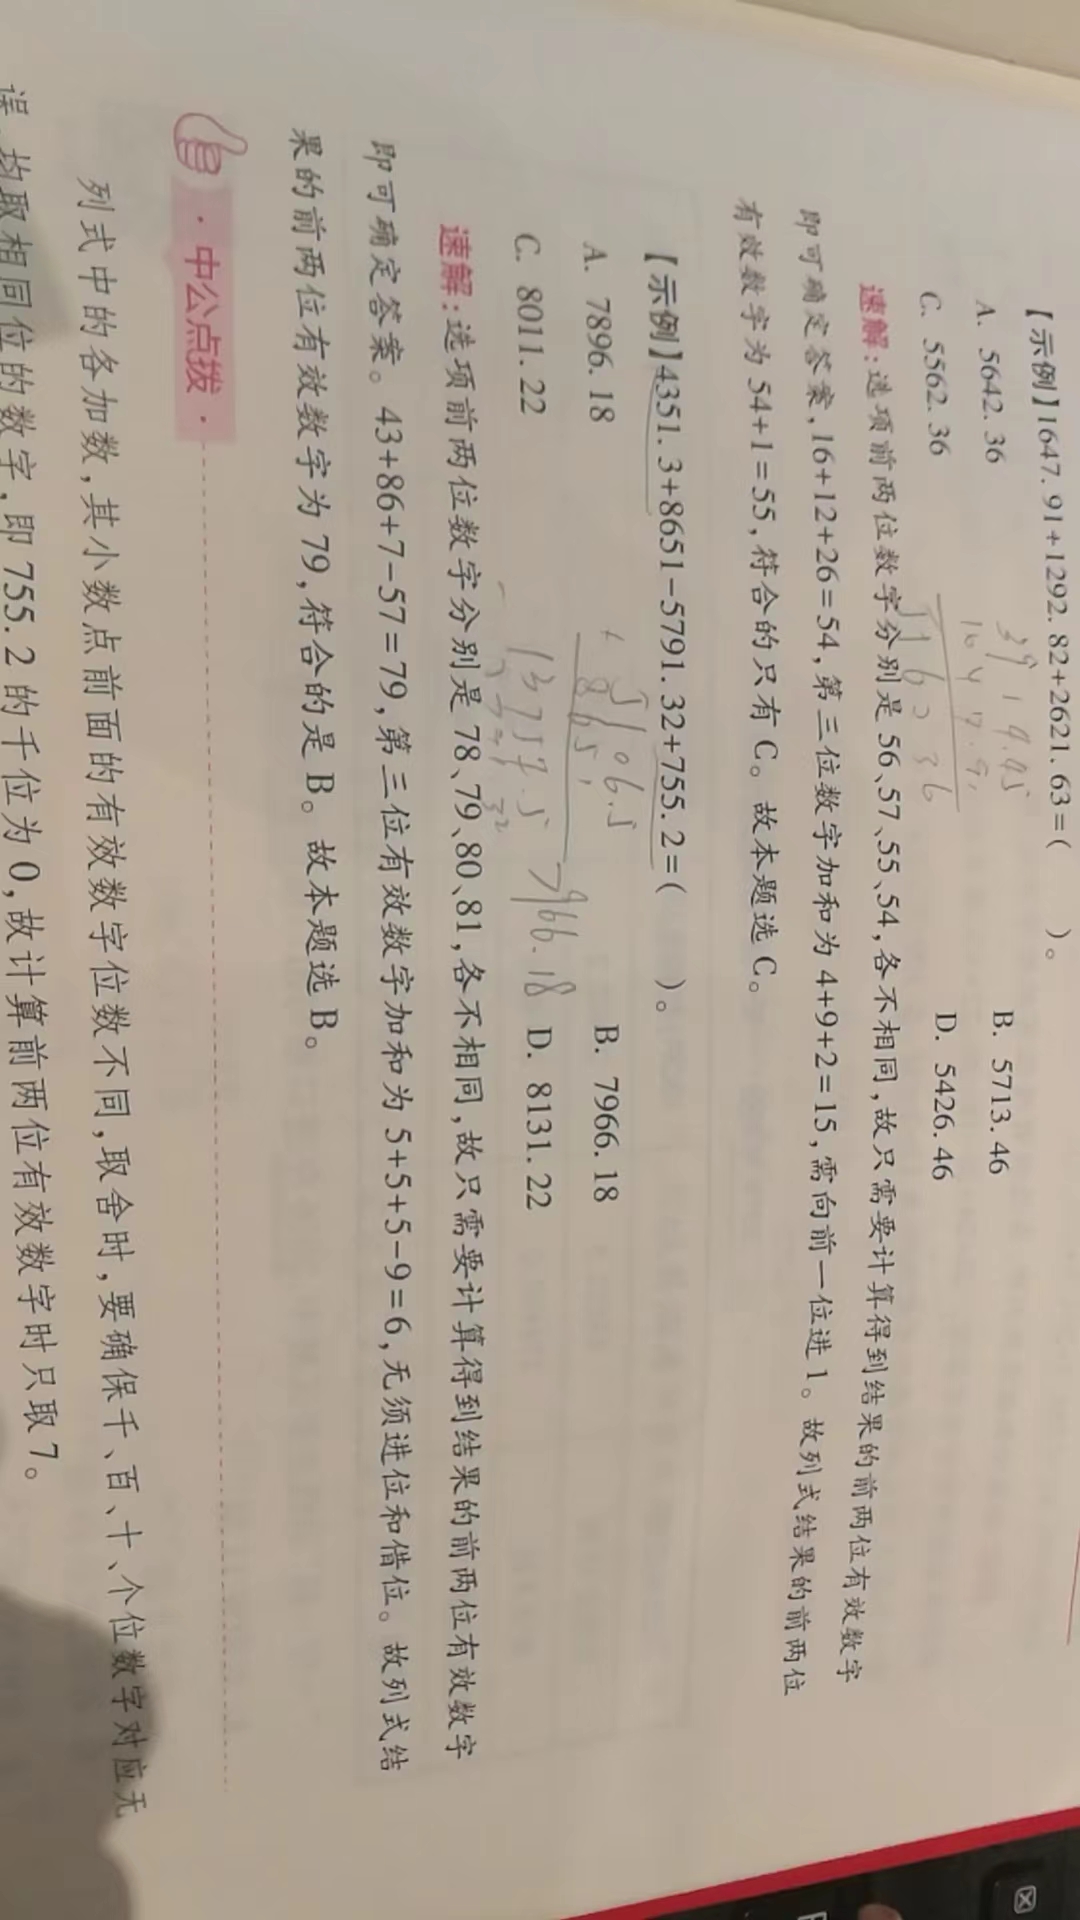 【示例】1647.91+1292.82+2621.63=(　　)。
A. 5642.36　B. 5713.46
C. 5562.36　D. 5426.46
速解:选项前两位数字分别是 56、57、55、54,各不相同,故只需要计算得到结果的前两位有效数字
即可确定答案,16+12+26=54,第三位数字加和为 4+9+2=15,需向前一位进 1。故列式结果的前两位
有效数字为 54+1=55,符合的只有 C。故本题选 C。
【示例】4351.3+8651-5791.32+755.2=(　　)。
A. 7896.18　B. 7966.18
C. 8011.22　D. 8131.22
7966.18
速解:选项前两位数字分别是 78、79、80、81,各不相同,故只需要计算得到结果的前两位有效数字
即可确定答案。43+86+7-57=79,第三位有效数字加和为 5+5+5-9=6,无须进位和借位。故列式结
果的前两位有效数字为 79,符合的是 B。故本题选 B。
·中公点拨·
列式中的各加数,其小数点前面的有效数字位数不同,取舍时,要确保千、百、十、个位数字对应无
误,均取相同位的数字,即 755.2 的千位为 0,故计算前两位有效数字时只取 7。